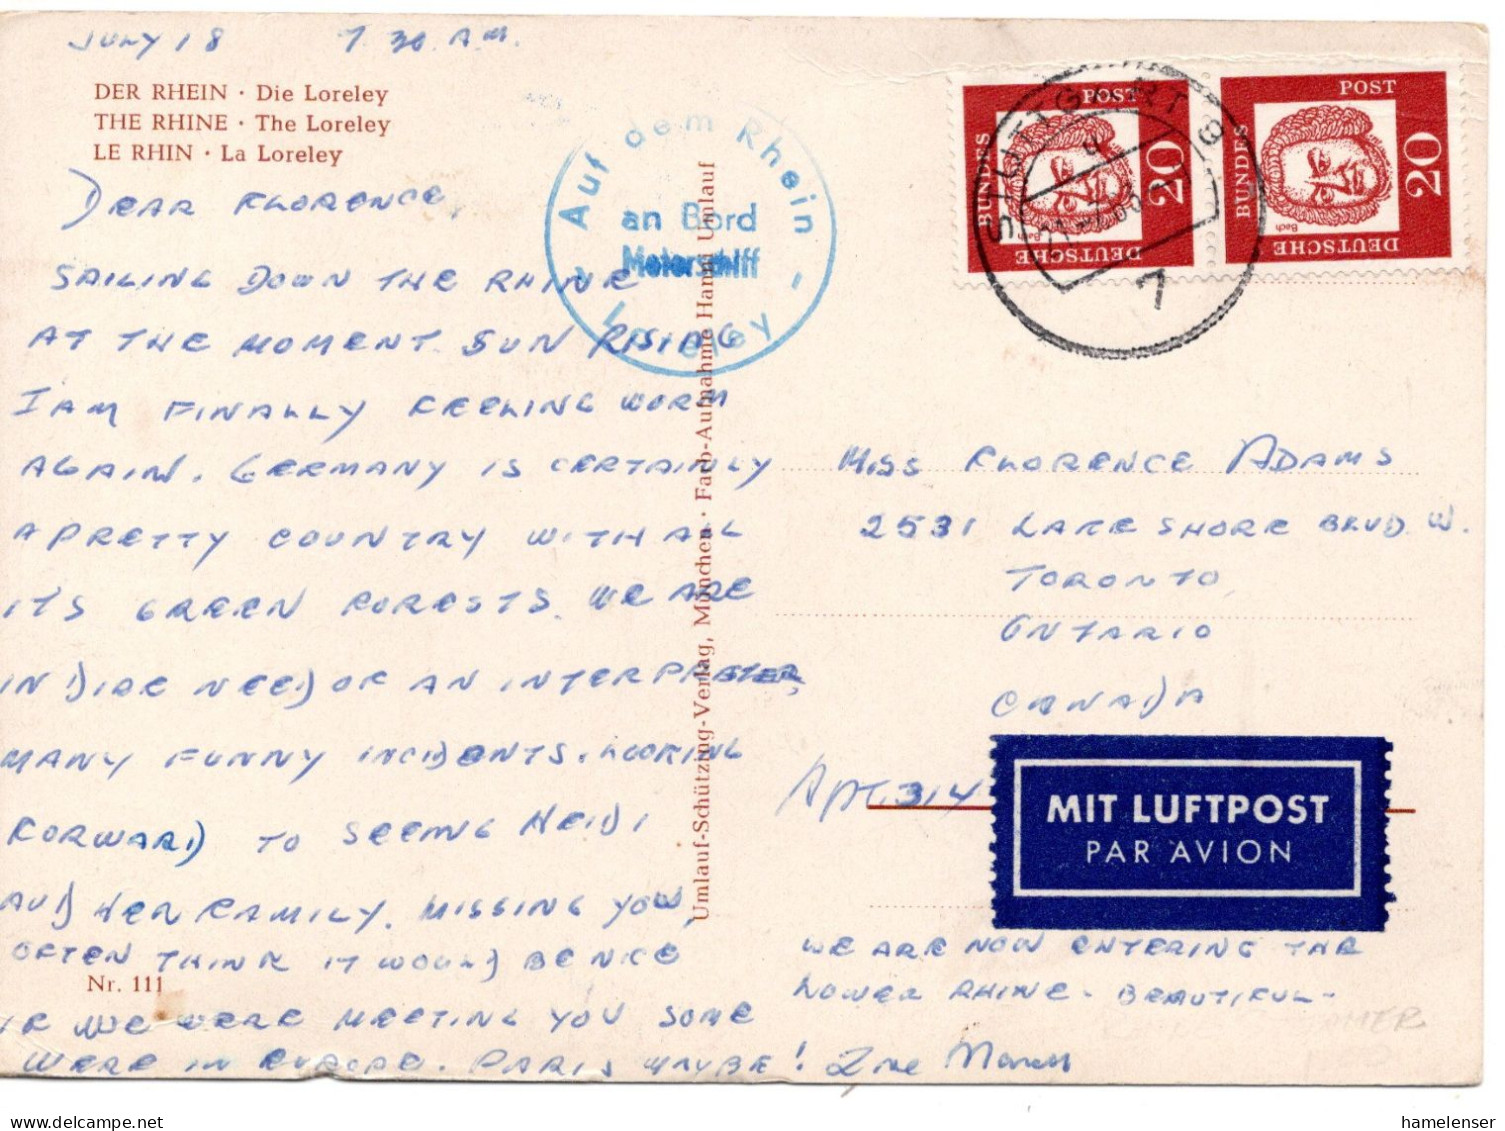 JULY 18 7.30 A.M.
DER RHEIN · Die Loreley
THE RHINE · The Loreley
LE RHIN · La Loreley
DEAR FLORENCE,
SAILING DOWN THE RHINE
AT THE MOMENT. SUN RISING
I AM FINALLY FEELING WORM
AGAIN. GERMANY IS CERTAINLY
A PRETTY COUNTRY WITH ALL
ITS GREEN FORESTS. WE ARE
IN DIRE NEED OF AN INTERPRETER,
MANY FUNNY INCIDENTS. LOOKING
FORWARD TO SEEING HEIDI
AND HER FAMILY. MISSING YOU,
OFTEN THINK IT WOULD BE NICE
Nr. 111
IF WE WERE MEETING YOU SOME
WERE IN EUROPE. PARIS MAYBE!
WE ARE NOW ENTERING THE
LOWER RHINE - BEAUTIFUL -
Auf dem Rhein
an Bord
Motorschiff
Loreley
Umlauf-Schützing-Verlag, München · Farb-Aufnahme Hanni Umlauf
POST
20
DEUTSCHE
BUNDES
Bach
POST
20
DEUTSCHE
BUNDES
STUTTGART 9
7
MISS FLORENCE ADAMS
2531 LAKE SHORE BLVD. W.
TORONTO,
ONTARIO
CANADA
Apt. 314
MIT LUFTPOST
PAR AVION
hamelenser